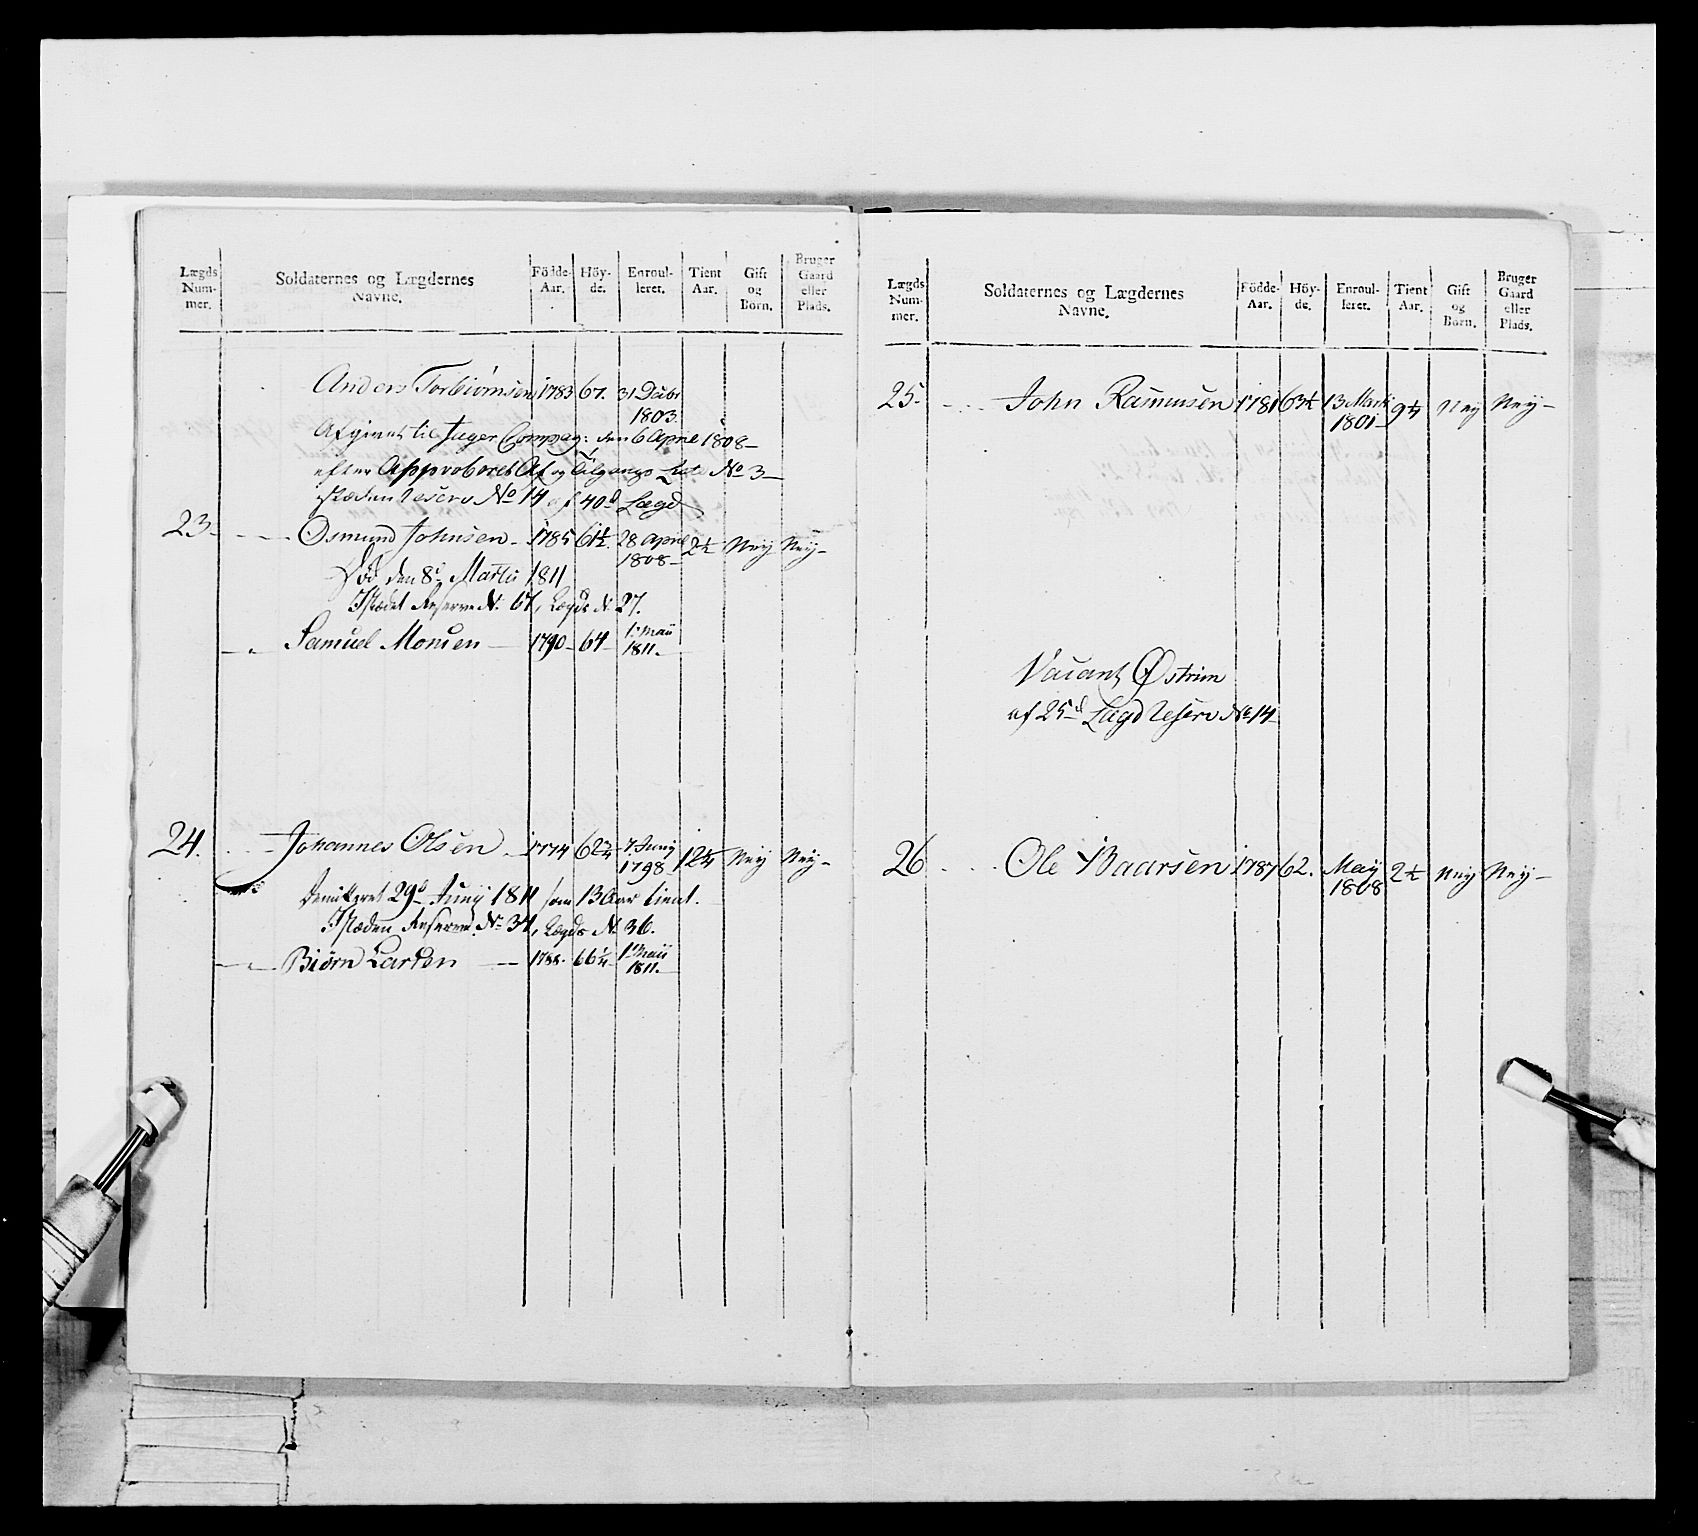 Lægds Num- mer. Soldaternes og Lægdernes Navne. Födde- Aar. Höy- de. Enroul- leret. Tient Aar. Gift og Börn. Bruger Gaard eller Plads.
Anders Torbiörnsen 1783 67. 31 Decbr
1803.
Afgivet til Jæger Compag: den 6 April 1808 —
efter Approberet Af og Tilgangs Liste No 3 —
isteden Reserv No 14 af 40d Lægd
23. Osmund Johnsen - 1785 61½. 28 April 2½ Neÿ Neÿ -
1808 -
Död den 8d Martii 1811
Istædet Reserve N. 67, Lægds N. 27.
„ Samuel Monsen — 1790 - 64 - 1. Maii
1811.
24. Johannes Olsen - 1774 62¾ 7 Junÿ 12¼ Neÿ Neÿ -
1798
Demitteret 29d Junÿ 1811 som 13 Aar tient.
Istæden Reserve N. 34, Lægds N. 36.
„ Biörn Larsen — 1788. 66¼ 1 Maii
1811.
Lægds Num- mer. Soldaternes og Lægdernes Navne. Födde- Aar. Höy- de. Enroul- leret. Tient Aar. Gift og Börn. Bruger Gaard eller Plads.
25. John Rasmusen 1781 63½ 13 Marti 9¼ Neÿ Neÿ —
1801 -
Vacant Østrim
af 25d Lægd Reserv No 14
26 Ole Baarsen 1787 62. Maÿ 2½ Neÿ Neÿ —
1808